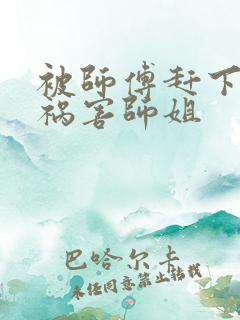 被師傅赶下
祸害師姐
巴哈尔卡
未经同意禁止转载